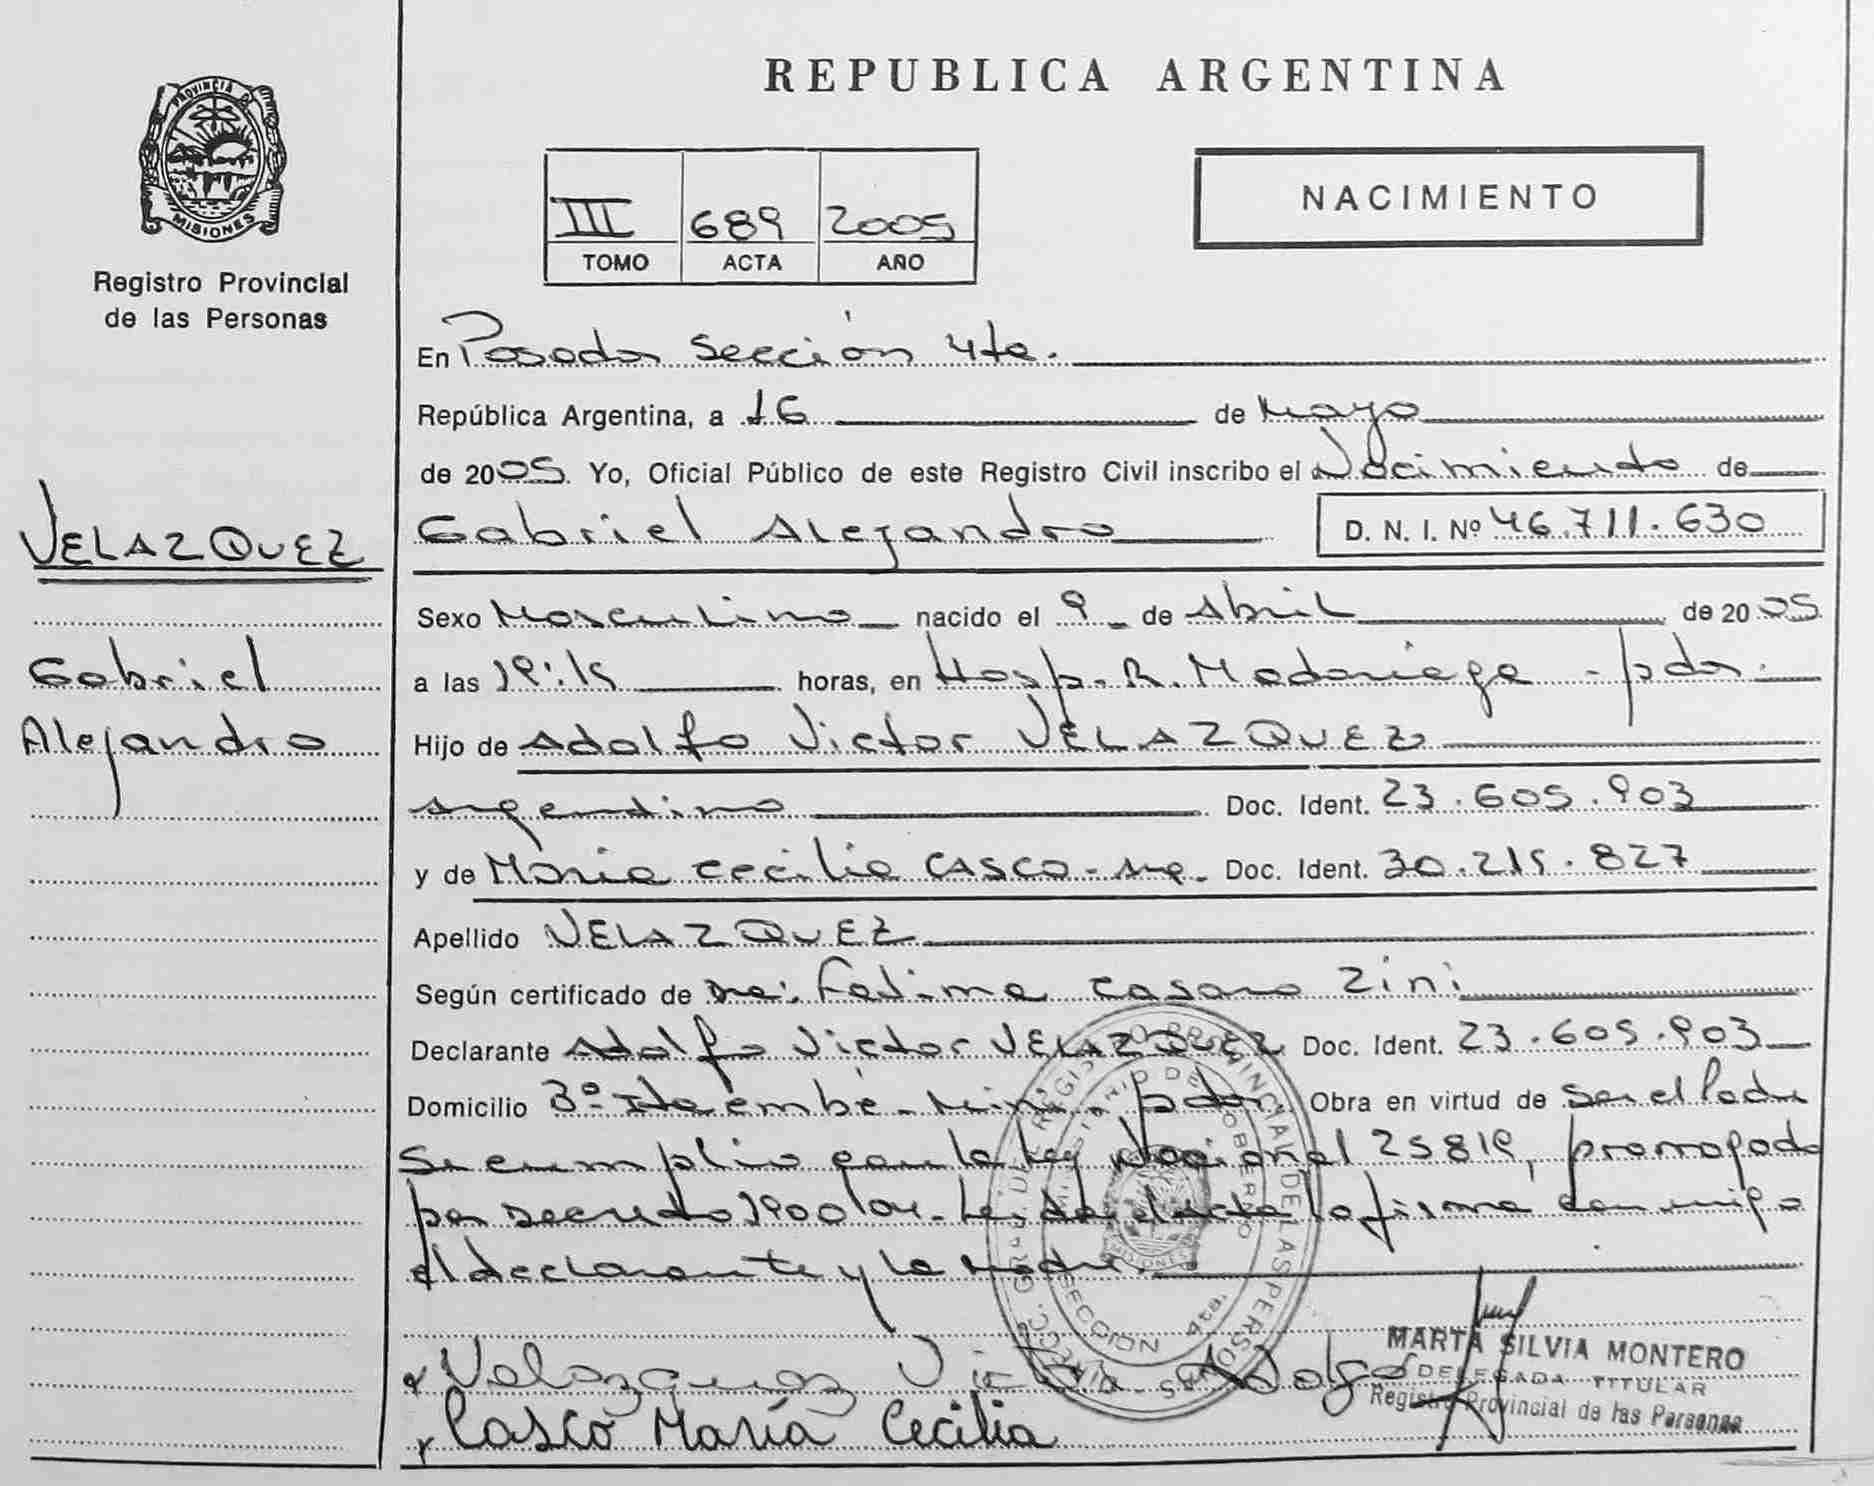 REPUBLICA ARGENTINA
PROVINCIA DE
MISIONES
Registro Provincial
de las Personas
III 689 2005
TOMO ACTA AÑO
NACIMIENTO
En Posadas Sección 4ta.
República Argentina, a 16 de Mayo
de 2005. Yo, Oficial Público de este Registro Civil inscribo el Nacimiento de
VELAZQUEZ
Gabriel
Alejandro
Gabriel Alejandro D. N. I. Nº 46.711.630
Sexo Masculino nacido el 9 de Abril de 2005
a las 19:15 horas, en Hosp. R. Madariaga - pdas.
Hijo de Adolfo Victor VELAZQUEZ
argentino Doc. Ident. 23.605.903
y de Maria Cecilia CASCO - arg. Doc. Ident. 30.215.827
Apellido VELAZQUEZ
Según certificado de Fatima Casaro Zini
Declarante Adolfo Victor VELAZQUEZ Doc. Ident. 23.605.903
Domicilio Itaembé - Mini - pdas. Obra en virtud de ser el Padre
Se cumplio con la Ley Nacional 25819, prorrogada
por decreto 1900/04. Leida el acta la firma conmigo
el declarante y la Madre.
Velazquez Victor Adolfo
Casco María Cecilia
MARTA SILVIA MONTERO
DELEGADA TITULAR
Registro Provincial de las Personas
REGISTRO PROVINCIAL DE LAS PERSONAS
MINISTERIO DE GOBIERNO
MISIONES
SECCION 4ta.